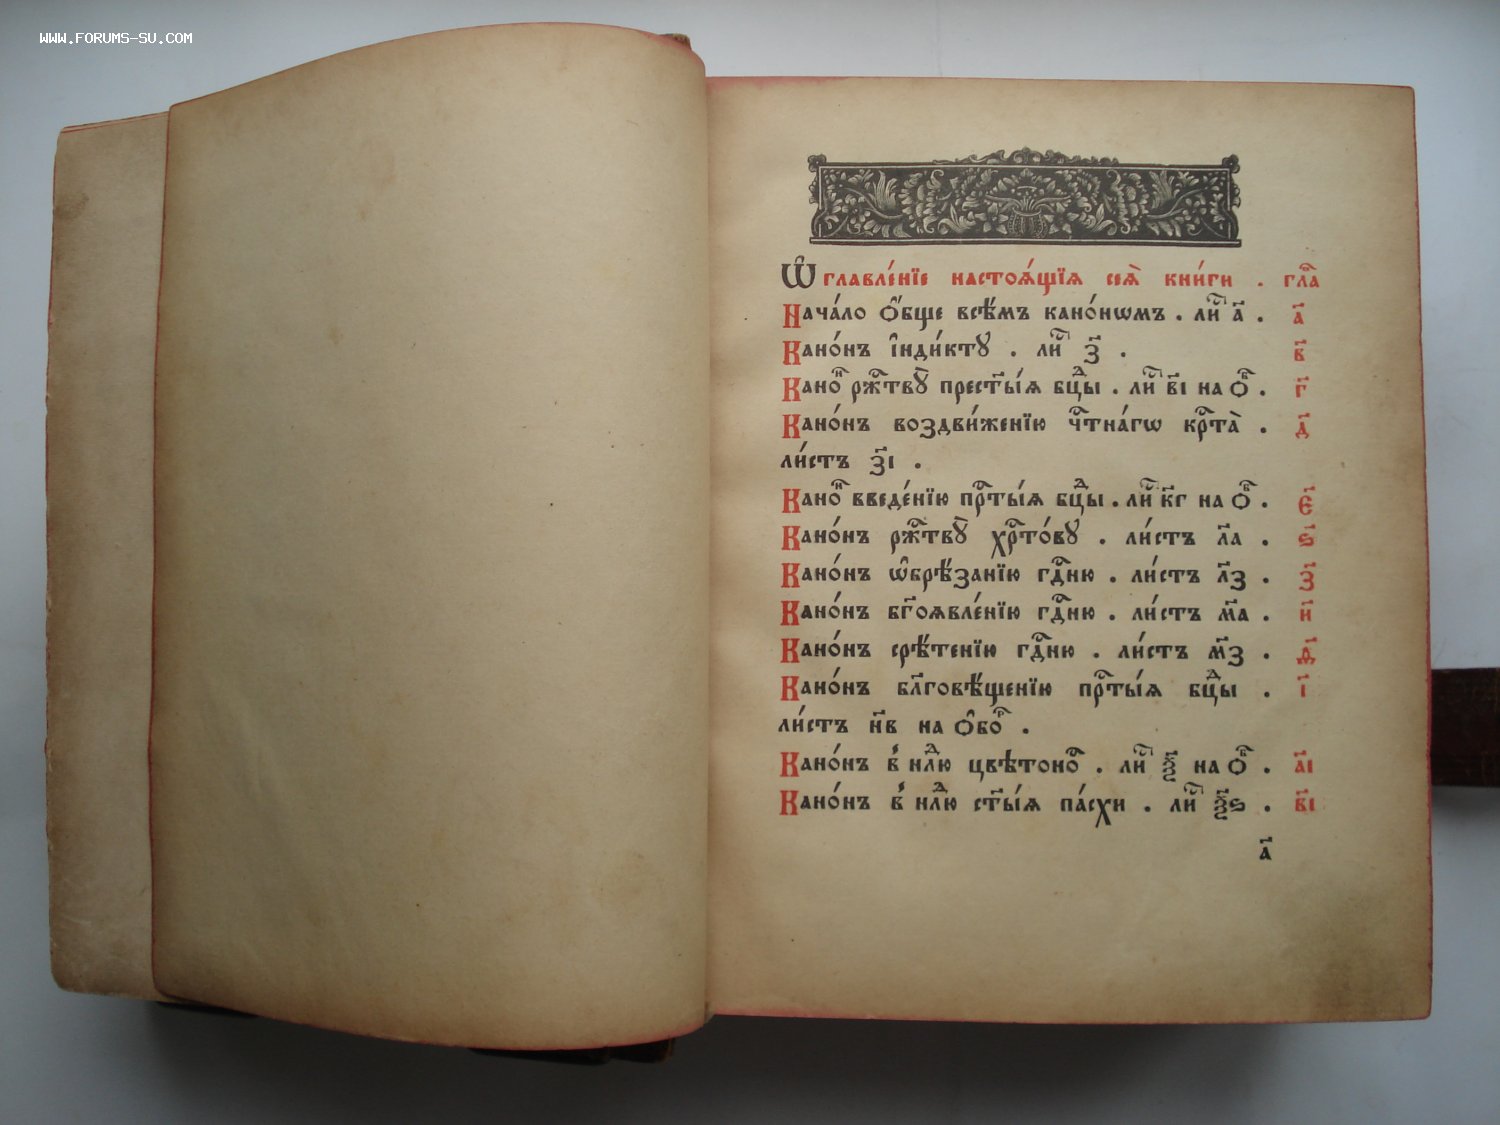 WWW.FORUMS-SU.COM
Ѡ҆главле́нїе настоѧ́щїѧ сеѧ̀ кни́ги . гла҃
Нача́ло ѻ҆́бще всѣ́мъ кано́нѡмъ . лиⷭ҇ а҃ . а҃
Кано́нъ і҆нди́ктꙋ . лиⷭ҇ з҃ . в҃
Каноⷩ҇ ржⷭ҇твꙋ̀ прест҃ы́ѧ бцⷣы . лиⷭ҇ в҃і на ѻ҆ⷠ҇ . г҃
Кано́нъ воздви́женїю чⷭ҇тна́гѡ крⷭ҇та̀ . д҃
ли́стъ з҃і .
Каноⷩ҇ введе́нїю прⷭ҇ты́ѧ бцⷣы . лиⷭ҇ к҃г на ѻ҆ⷠ҇ . є҃
Кано́нъ ржⷭ҇твꙋ̀ хрⷭ҇то́вꙋ . ли́стъ л҃а . ѕ҃
Кано́нъ ѡ҆брѣ́занїю гдⷭ҇ню . ли́стъ л҃з . з҃
Кано́нъ бг҃оѧвле́нїю гдⷭ҇ню . ли́стъ м҃а . и҃
Кано́нъ срѣ́тенїю гдⷭ҇ню . ли́стъ м҃з . ѳ҃
Кано́нъ бл҃говѣ́щенїю прⷭ҇ты́ѧ бцⷣы . і҃
ли́стъ н҃в на ѻ҆боⷬ҇ .
Кано́нъ в̾ нлⷣю цвѣтоноⷭ҇ . лиⷭ҇ ѯ҃ на ѻ҆ⷠ҇ . а҃і
Кано́нъ в̾ нлⷣю ст҃ы́ѧ па́схи . лиⷭ҇ ѯ҃ѕ . в҃і
а҃